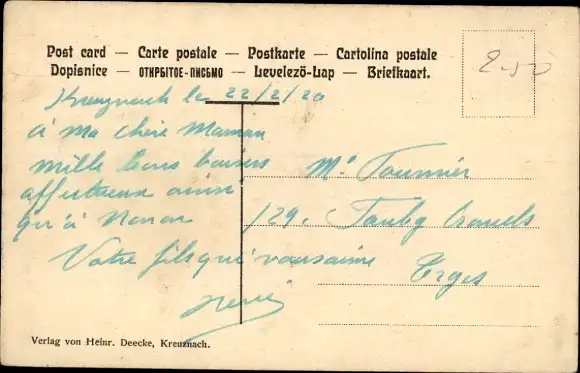 Post card — Carte postale — Postkarte — Cartolina postale
Dopisnice — ОТКРЫТОЕ-ПИСЬМО — Levelező-Lap — Briefkaart.
Kreuznach le 22/2/20
à Ma chère Maman
mille bons baisers
affectueux ainsi
qu'à
Votre fils qui vous aime
René
Mr Fournier
129. Faubg
Verlag von Heinr. Deecke, Kreuznach.